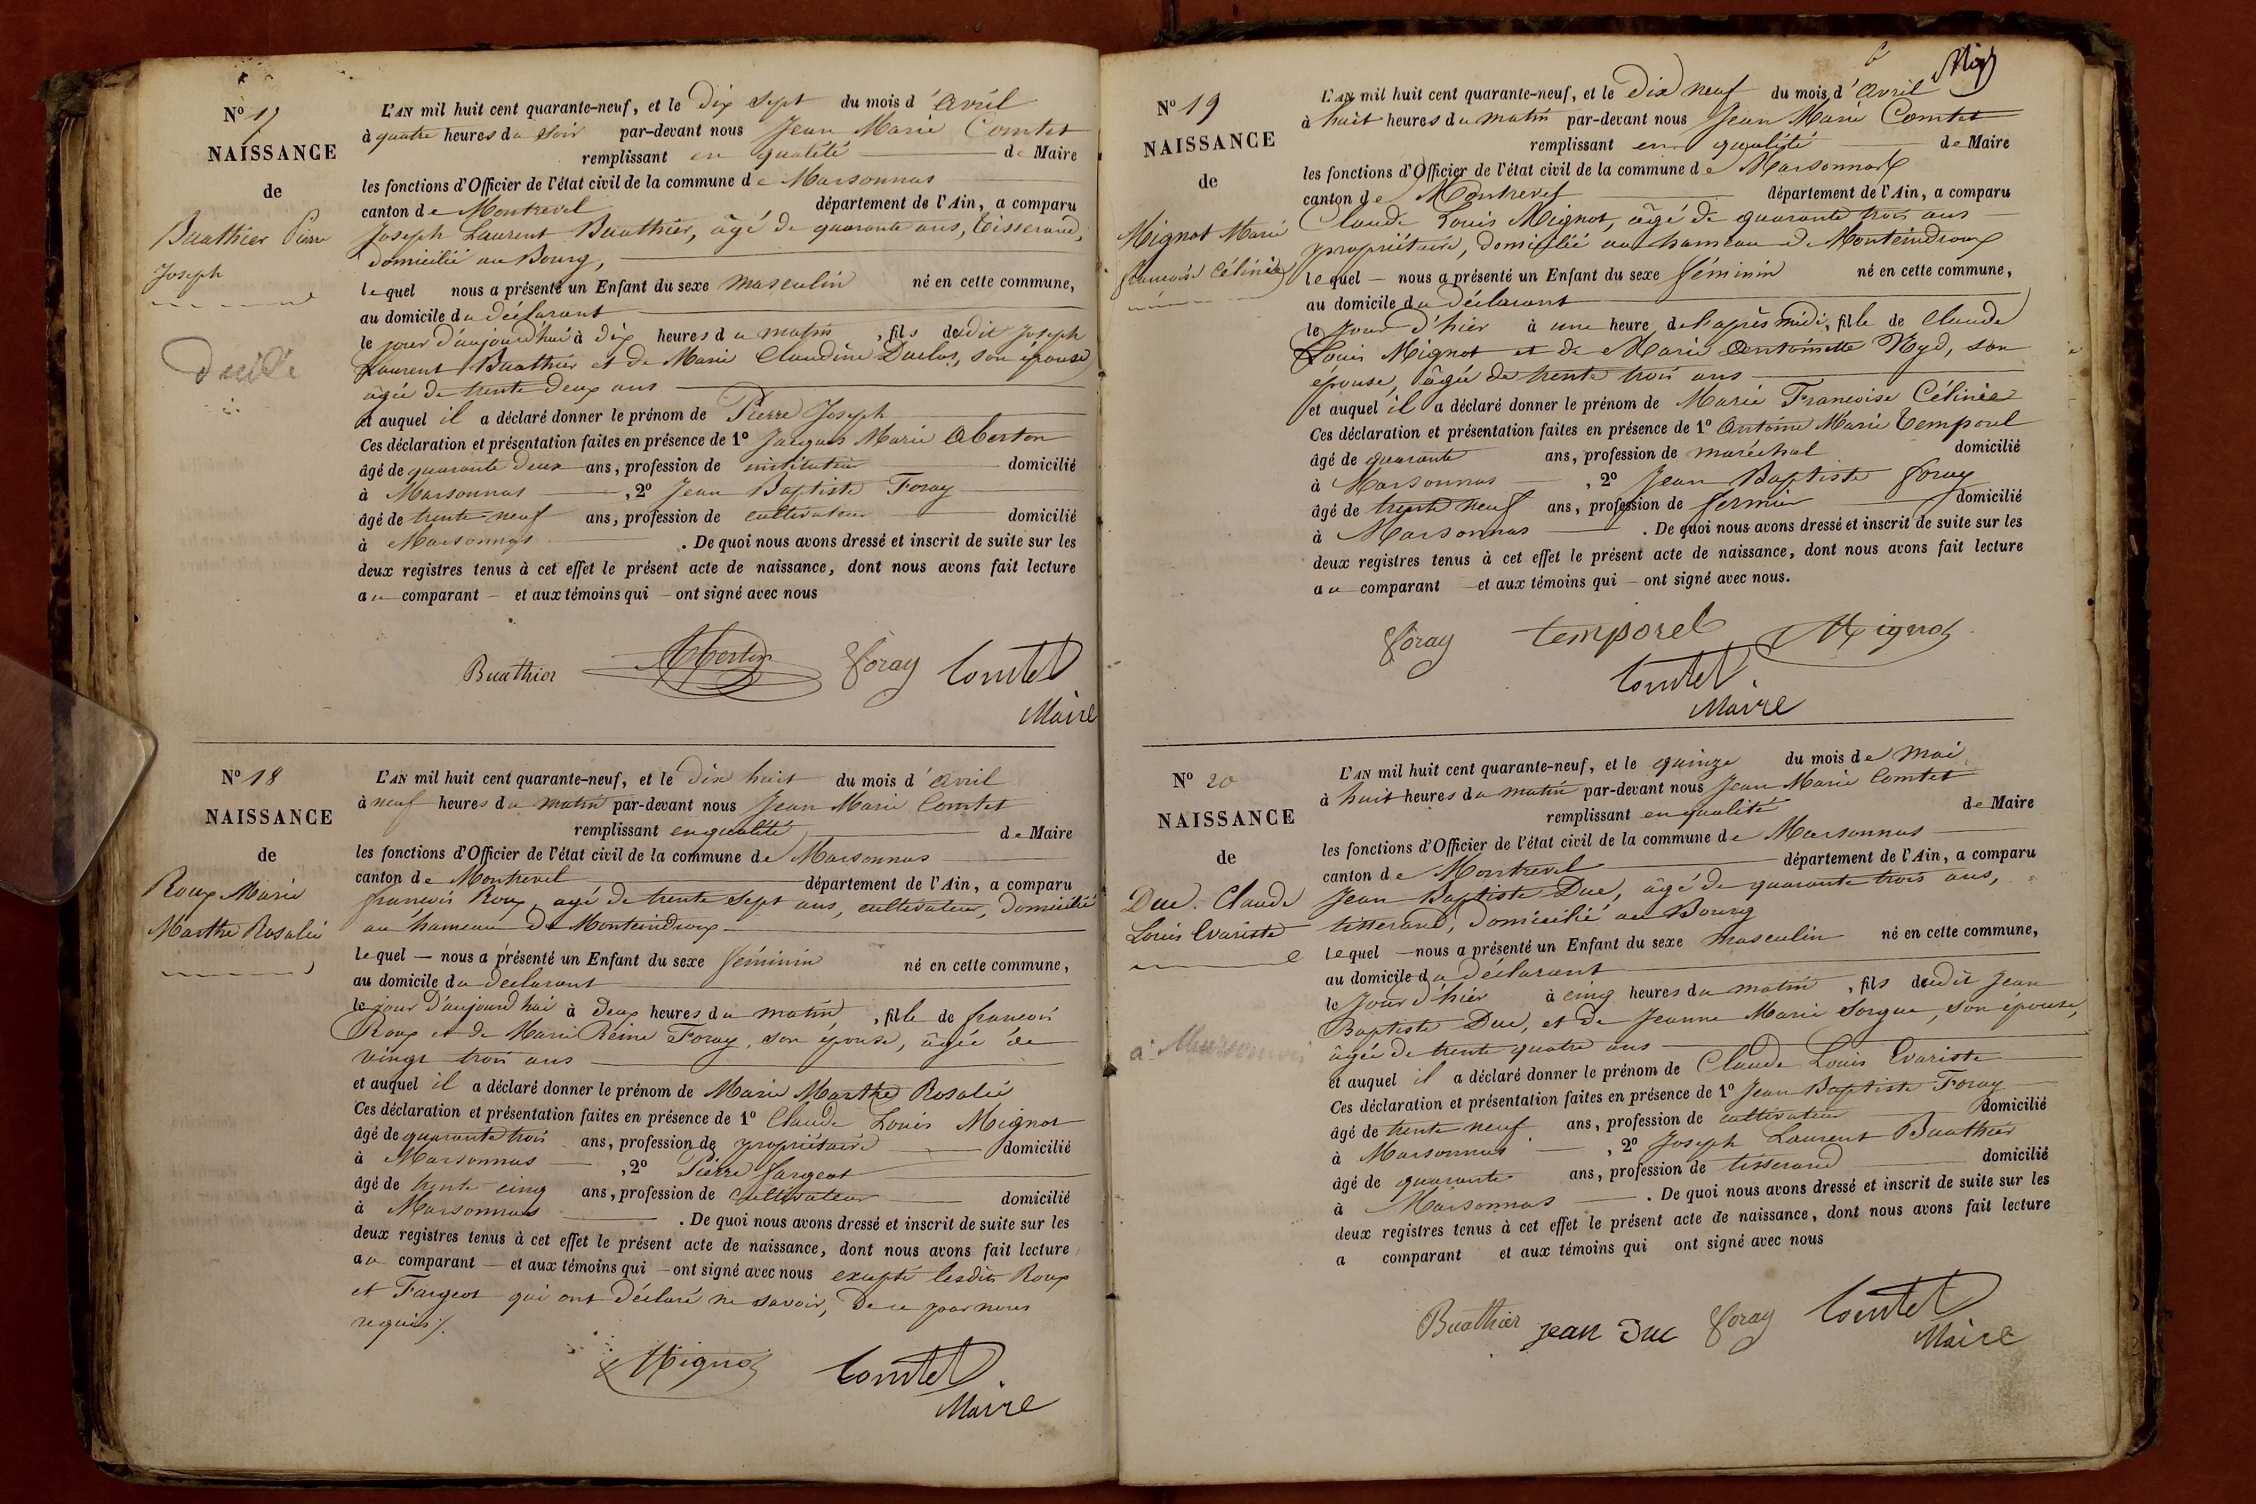 N° 17
NAISSANCE
de
Buathier Pierre
Joseph
L'AN mil huit cent quarante-neuf, et le dix sept du mois d'avril
à quatre heures du soir par-devant nous Jean Marie Comtet
remplissant en qualité de Maire
les fonctions d'Officier de l'état civil de la commune de Marsonnas
canton de Montrevel département de l'Ain, a comparu
Joseph Laurent Buathier, âgé de quarante ans, tisserand,
domicilié au Bourg,
lequel nous a présenté un Enfant du sexe masculin né en cette commune,
au domicile du déclarant
le jour d'aujourd'hui à dix heures du matin, fils dudit Joseph
Laurent Buathier et de Marie Claudine Duclos, son épouse
âgée de trente deux ans
et auquel il a déclaré donner le prénom de Pierre Joseph
Ces déclaration et présentation faites en présence de 1° Jacques Marie Aberton
âgé de quarante deux ans, profession de instituteur domicilié
à Marsonnas, 2° Jean Baptiste Foray
âgé de trente neuf ans, profession de cultivateur domicilié
à Marsonnas. De quoi nous avons dressé et inscrit de suite sur les
deux registres tenus à cet effet le présent acte de naissance, dont nous avons fait lecture
au comparant et aux témoins qui ont signé avec nous
Buathier Foray Comtet
Maire
N° 18
NAISSANCE
de
Roux Marie
Marthe Rosalie
L'AN mil huit cent quarante-neuf, et le dix huit du mois d'avril
à neuf heures du matin par-devant nous Jean Marie Comtet
remplissant en qualité de Maire
les fonctions d'Officier de l'état civil de la commune de Marsonnas
canton de Montrevel département de l'Ain, a comparu
françois Roux, agé de trente sept ans, cultivateur, domicilié
au hameau de Monteindroux
lequel nous a présenté un Enfant du sexe féminin né en cette commune,
au domicile du déclarant
le jour d'aujourd'hui à deux heures du matin, fille de françois
Roux et de Marie Reine Foray, son épouse, âgée de
vingt trois ans
et auquel il a déclaré donner le prénom de Marie Marthe Rosalie
Ces déclaration et présentation faites en présence de 1° Claude Louis Mignot
âgé de quarante trois ans, profession de propriétaire domicilié
à Marsonnas, 2° Pierre Fargeot
âgé de trente cinq ans, profession de cultivateur domicilié
à Marsonnas. De quoi nous avons dressé et inscrit de suite sur les
deux registres tenus à cet effet le présent acte de naissance, dont nous avons fait lecture
au comparant et aux témoins qui ont signé avec nous excepté lesdits Roux
et Fargeot qui ont déclaré ne savoir, de ce par nous
requis.
Mignot Comtet
Maire
N° 19
NAISSANCE
de
Mignot Marie
françoise Célinie
L'AN mil huit cent quarante-neuf, et le dix neuf du mois d'avril
à huit heures du matin par-devant nous Jean Marie Comtet
remplissant en qualité de Maire
les fonctions d'Officier de l'état civil de la commune de Marsonnas
canton de Montrevel département de l'Ain, a comparu
Claude Louis Mignot, âgé de quarante trois ans
propriétaire, domicilié au hameau de Monteindroux
lequel nous a présenté un Enfant du sexe féminin né en cette commune,
au domicile du déclarant
le jour d'hier à une heure de l'après midi, fille de Claude
Louis Mignot et de Marie Antoinette Nyd, son
épouse, âgée de trente trois ans
et auquel il a déclaré donner le prénom de Marie Francoise Célinie
Ces déclaration et présentation faites en présence de 1° Antoine Marie Temporel
âgé de quarante ans, profession de maréchal domicilié
à Marsonnas, 2° Jean Baptiste foray
âgé de trente neuf ans, profession de fermier domicilié
à Marsonnas. De quoi nous avons dressé et inscrit de suite sur les
deux registres tenus à cet effet le présent acte de naissance, dont nous avons fait lecture
au comparant et aux témoins qui ont signé avec nous.
foray temporel Mignot
Comtet
Maire
N° 20
NAISSANCE
de
Duc Claude
Louis Evariste
à Marsonnas
L'AN mil huit cent quarante-neuf, et le quinze du mois de mai
à huit heures du matin par-devant nous Jean Marie Comtet
remplissant en qualité de Maire
les fonctions d'Officier de l'état civil de la commune de Marsonnas
canton de Montrevel département de l'Ain, a comparu
Jean Baptiste Duc, âgé de quarante trois ans,
tisserand, domicilié au Bourg
lequel nous a présenté un Enfant du sexe masculin né en cette commune,
au domicile du déclarant
le jour d'hier à cinq heures du matin, fils dudit Jean
Baptiste Duc, et de Jeanne Marie Sorgue, son épouse,
âgée de trente quatre ans
et auquel il a déclaré donner le prénom de Claude Louis Evariste
Ces déclaration et présentation faites en présence de 1° Jean Baptiste Foray
âgé de trente neuf ans, profession de cultivateur domicilié
à Marsonnas, 2° Joseph Laurent Buathier
âgé de quarante ans, profession de tisserand domicilié
à Marsonnas. De quoi nous avons dressé et inscrit de suite sur les
deux registres tenus à cet effet le présent acte de naissance, dont nous avons fait lecture
a comparant et aux témoins qui ont signé avec nous
Buathier jean Duc foray Comtet
Maire